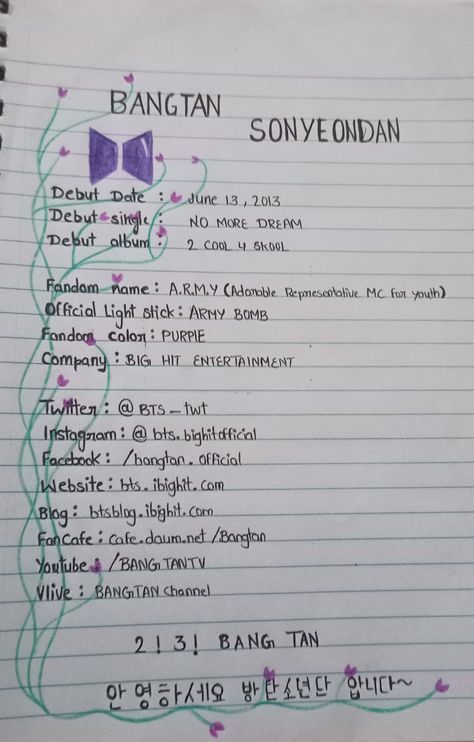 BANGTAN
SONYEONDAN
Debut Date : June 13, 2013
Debut single : NO MORE DREAM
Debut album : 2 COOL 4 SKOOL
Fandom name : A.R.M.Y (Adorable Representative MC for youth)
Official Light stick : ARMY BOMB
Fandom color : PURPLE
Company : BIG HIT ENTERTAINMENT
Twitter : @ BTS _ twt
Instagram : @ bts. bighitofficial
Facebook : /bangtan . official
Website : bts . ibighit . com
Blog : btsblog . ibighit . com
FanCafe : cafe.daum.net /Bangtan
Youtube : /BANGTANTV
Vlive : BANGTAN Channel
2 ! 3 ! BANG TAN
안 영하세요 방탄소년단 입니다~